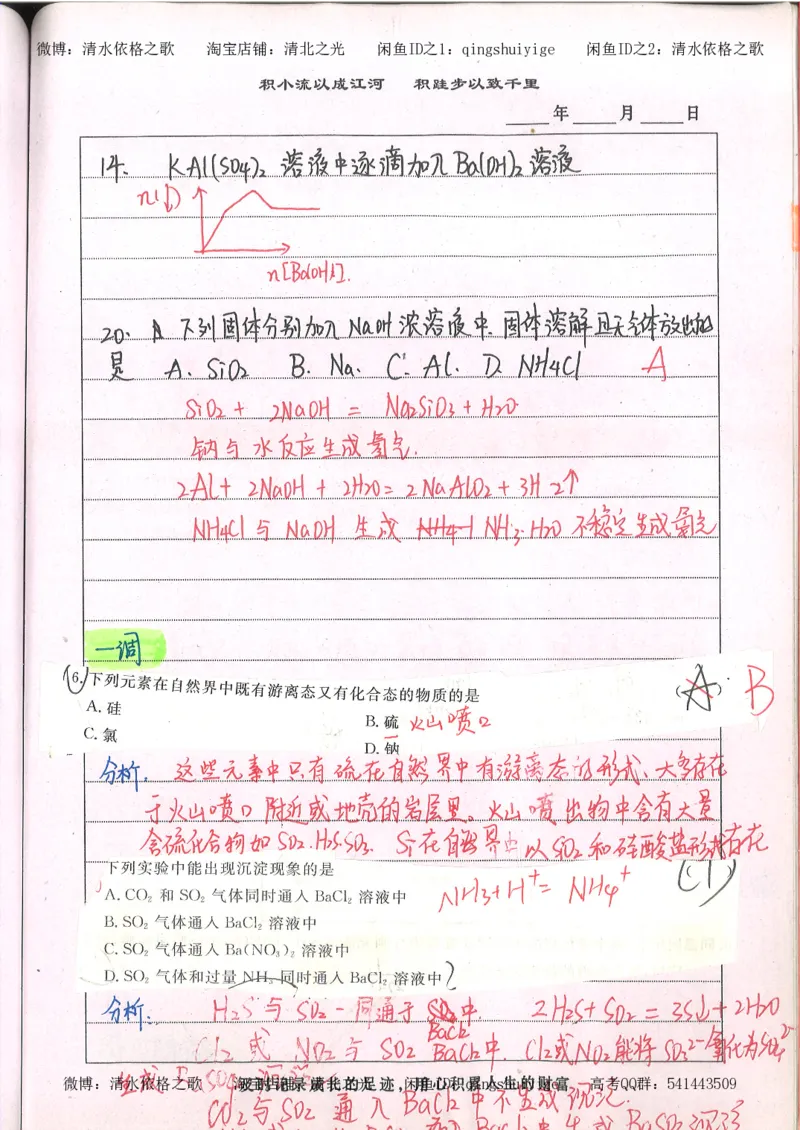 微博：清水依格之歌 淘宝店铺：清北之光 闲鱼ID之1：qingshuiyige 闲鱼ID之2：清水依格之歌
积小流以成江河 积跬步以致千里
年 月 日
14. KAl(SO4)2 溶液中逐滴加入Ba(OH)2溶液
n(↓)
n[Ba(OH)2].
20. 下列固体分别加入NaOH浓溶液中.固体溶解且无气体放出的
是 A. SiO2 B. Na. C. Al. D. NH4Cl A
SiO2 + 2NaOH = Na2SiO3 + H2O
钠与水反应生成氢气.
2Al + 2NaOH + 2H2O = 2NaAlO2 + 3H2↑
NH4Cl与NaOH生成 NH3·H2O 不稳定生成氨气
一调
(6.)下列元素在自然界中既有游离态又有化合态的物质的是 (A) B
A. 硅
B. 硫 火山喷口
C. 氯
D. 钠
分析. 这些元素中只有硫在自然界中有游离态的形式、大多存在
于火山喷口附近或地壳的岩层里。火山喷出物中含有大量
含硫化合物如SO2.H2S.SO3. Si在自然界中以SiO2和硅酸盐形式存在
下列实验中能出现沉淀现象的是
A. CO2 和 SO2 气体同时通入 BaCl2 溶液中 NH3+H+= NH4+
B. SO2 气体通入 BaCl2 溶液中
C. SO2 气体通入 Ba(NO3)2 溶液中
D. SO2 气体和过量 NH3 同时通入 BaCl2 溶液中
分析: H2S与SO2一同通于BaCl2中. 2H2S+SO2=3S↓+2H2O
Cl2或NO2与SO2 BaCl2中. Cl2或NO2能将SO32-氧化为SO42-
生成BaSO4
微博：清水依格之歌 闲鱼ID qingshuiyige 高考QQ群：541443509
及时记录成长的足迹，用心积累人生的财富
CO2与SO2通入BaCl2中不生成沉淀.